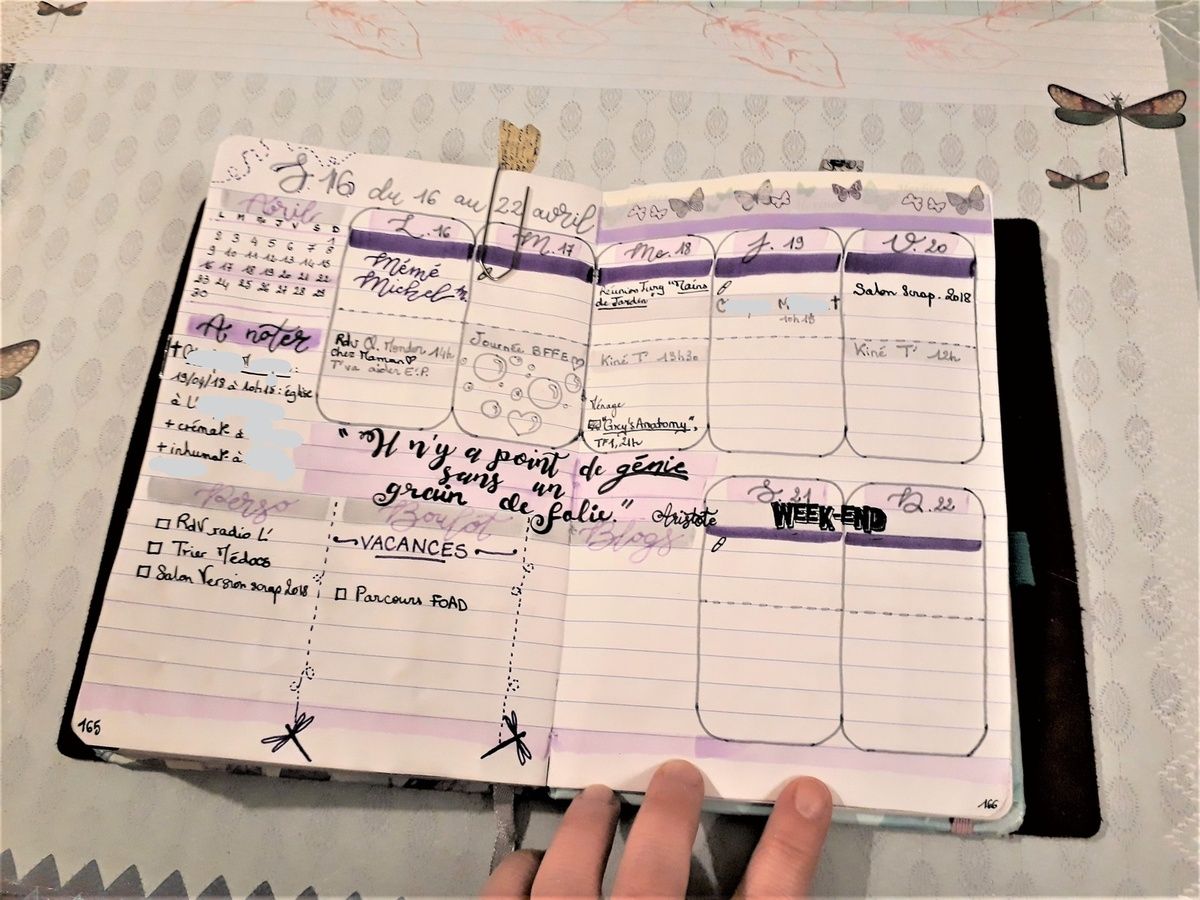 S 16 du 16 au 22 avril
Avril
L M M J V S D
1
2 3 4 5 6 7 8
9 10 11 12 13 14 15
16 17 18 19 20 21 22
23 24 25 26 27 28 29
30
A noter
19/04/18 à 10h15 : église
à L'
+ crémat° à
+ inhumat° à
L. 16
Mémé
Michel
Rdv Q. Mondor 14h
chez Maman♡
T'va aider E.P.
M. 17
Journée BFFE♡
Me. 18
Réunion Jury "Mains
de Jardin"
Kiné T' 13h30
"Grey's Anatomy",
TF1, 21h
J. 19
C M †
10h15
V. 20
Salon Scrap. 2018
Kiné T' 12h
"Il n'y a point de génie
sans un
grain de folie." Aristote
Perso
□ RdV radio L'
□ Trier Médocs
□ Salon Version scrap 2018
Boulot
VACANCES
□ Parcours FOAD
Blogs
S. 21
WEEK-END
D. 22
165
166